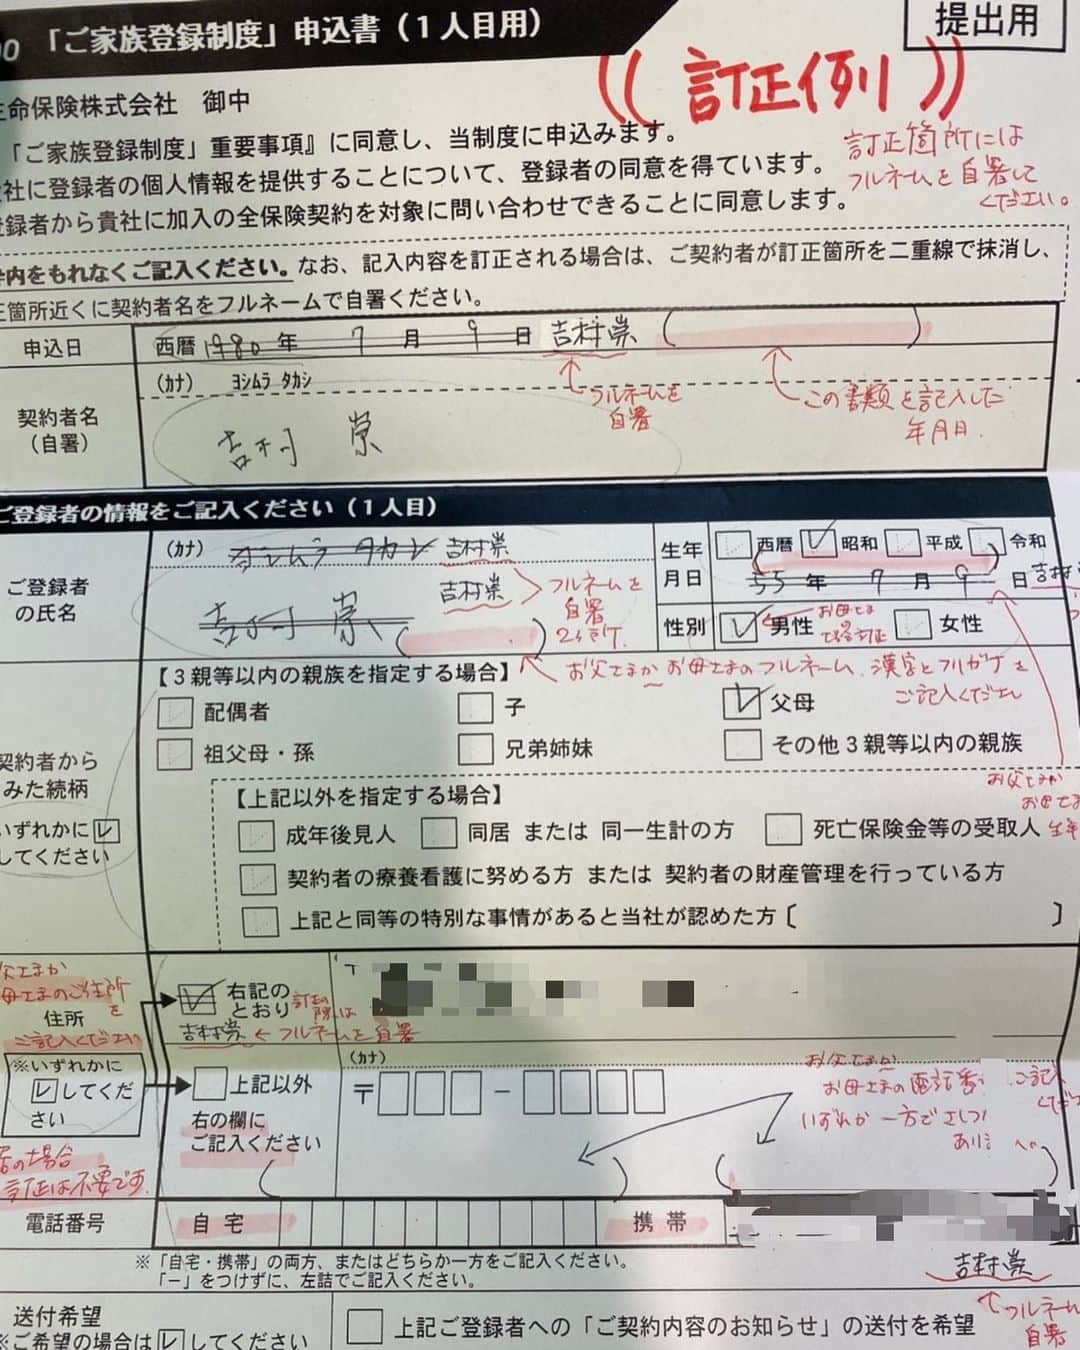 「ご家族登録制度」申込書（１人目用）
提出用
((訂正例))
生命保険株式会社　御中
「ご家族登録制度」重要事項』に同意し、当制度に申込みます。
社に登録者の個人情報を提供することについて、登録者の同意を得ています。
登録者から貴社に加入の全保険契約を対象に問い合わせできることに同意します。
訂正箇所には
フルネームを自署して
ください。
枠内をもれなくご記入ください。なお、記入内容を訂正される場合は、ご契約者が訂正箇所を二重線で抹消し、
正箇所近くに契約者名をフルネームで自署ください。
申込日
西暦 1980 年 7 月 9 日 吉村崇 (　)
契約者名
（自署）
（カナ） ヨシムラ タカシ
吉村　崇
フルネームを
自署
この書類を記入した
年月日.
ご登録者の情報をご記入ください（１人目）
ご登録者
の氏名
（カナ） ヨシムラ タカシ 吉村崇
吉村　崇 吉村崇
(　)
フルネームを
自署
2ヶ所.
生年
月日
西暦 昭和 平成 令和
55 年 7 月 9 日 吉村崇
性別
男性 女性
お母さま
の
場合訂正
お父さまか お母さまのフルネーム、漢字とフリガナを
ご記入ください
契約者から
みた続柄
いずれかに レ
してください
【３親等以内の親族を指定する場合】
配偶者 子 父母
祖父母・孫 兄弟姉妹 その他３親等以内の親族
お父さまか
お母さま
生年
【上記以外を指定する場合】
成年後見人 同居 または 同一生計の方 死亡保険金等の受取人
契約者の療養看護に努める方 または 契約者の財産管理を行っている方
上記と同等の特別な事情があると当社が認めた方〔　〕
父さまか
母さまのご住所
を
ご記入ください
住所
※いずれかに
レ してくだ
さい
右記の
とおり
訂正の
際は
吉村崇 ← フルネームを自署
上記以外
右の欄に
ご記入ください
（カナ）
〒 －
お父さまか
お母さまの電話番 ご記入
くださ
いずれか一方でさしつ
あり
の場合
訂正は不要です.
電話番号
自宅 携帯
※「自宅・携帯」の両方、またはどちらか一方をご記入ください。
「－」をつけずに、左詰でご記入ください。
吉村崇
フルネーム
自署
送付希望
※ご希望の場合は レ してください
上記ご登録者への「ご契約内容のお知らせ」の送付を希望